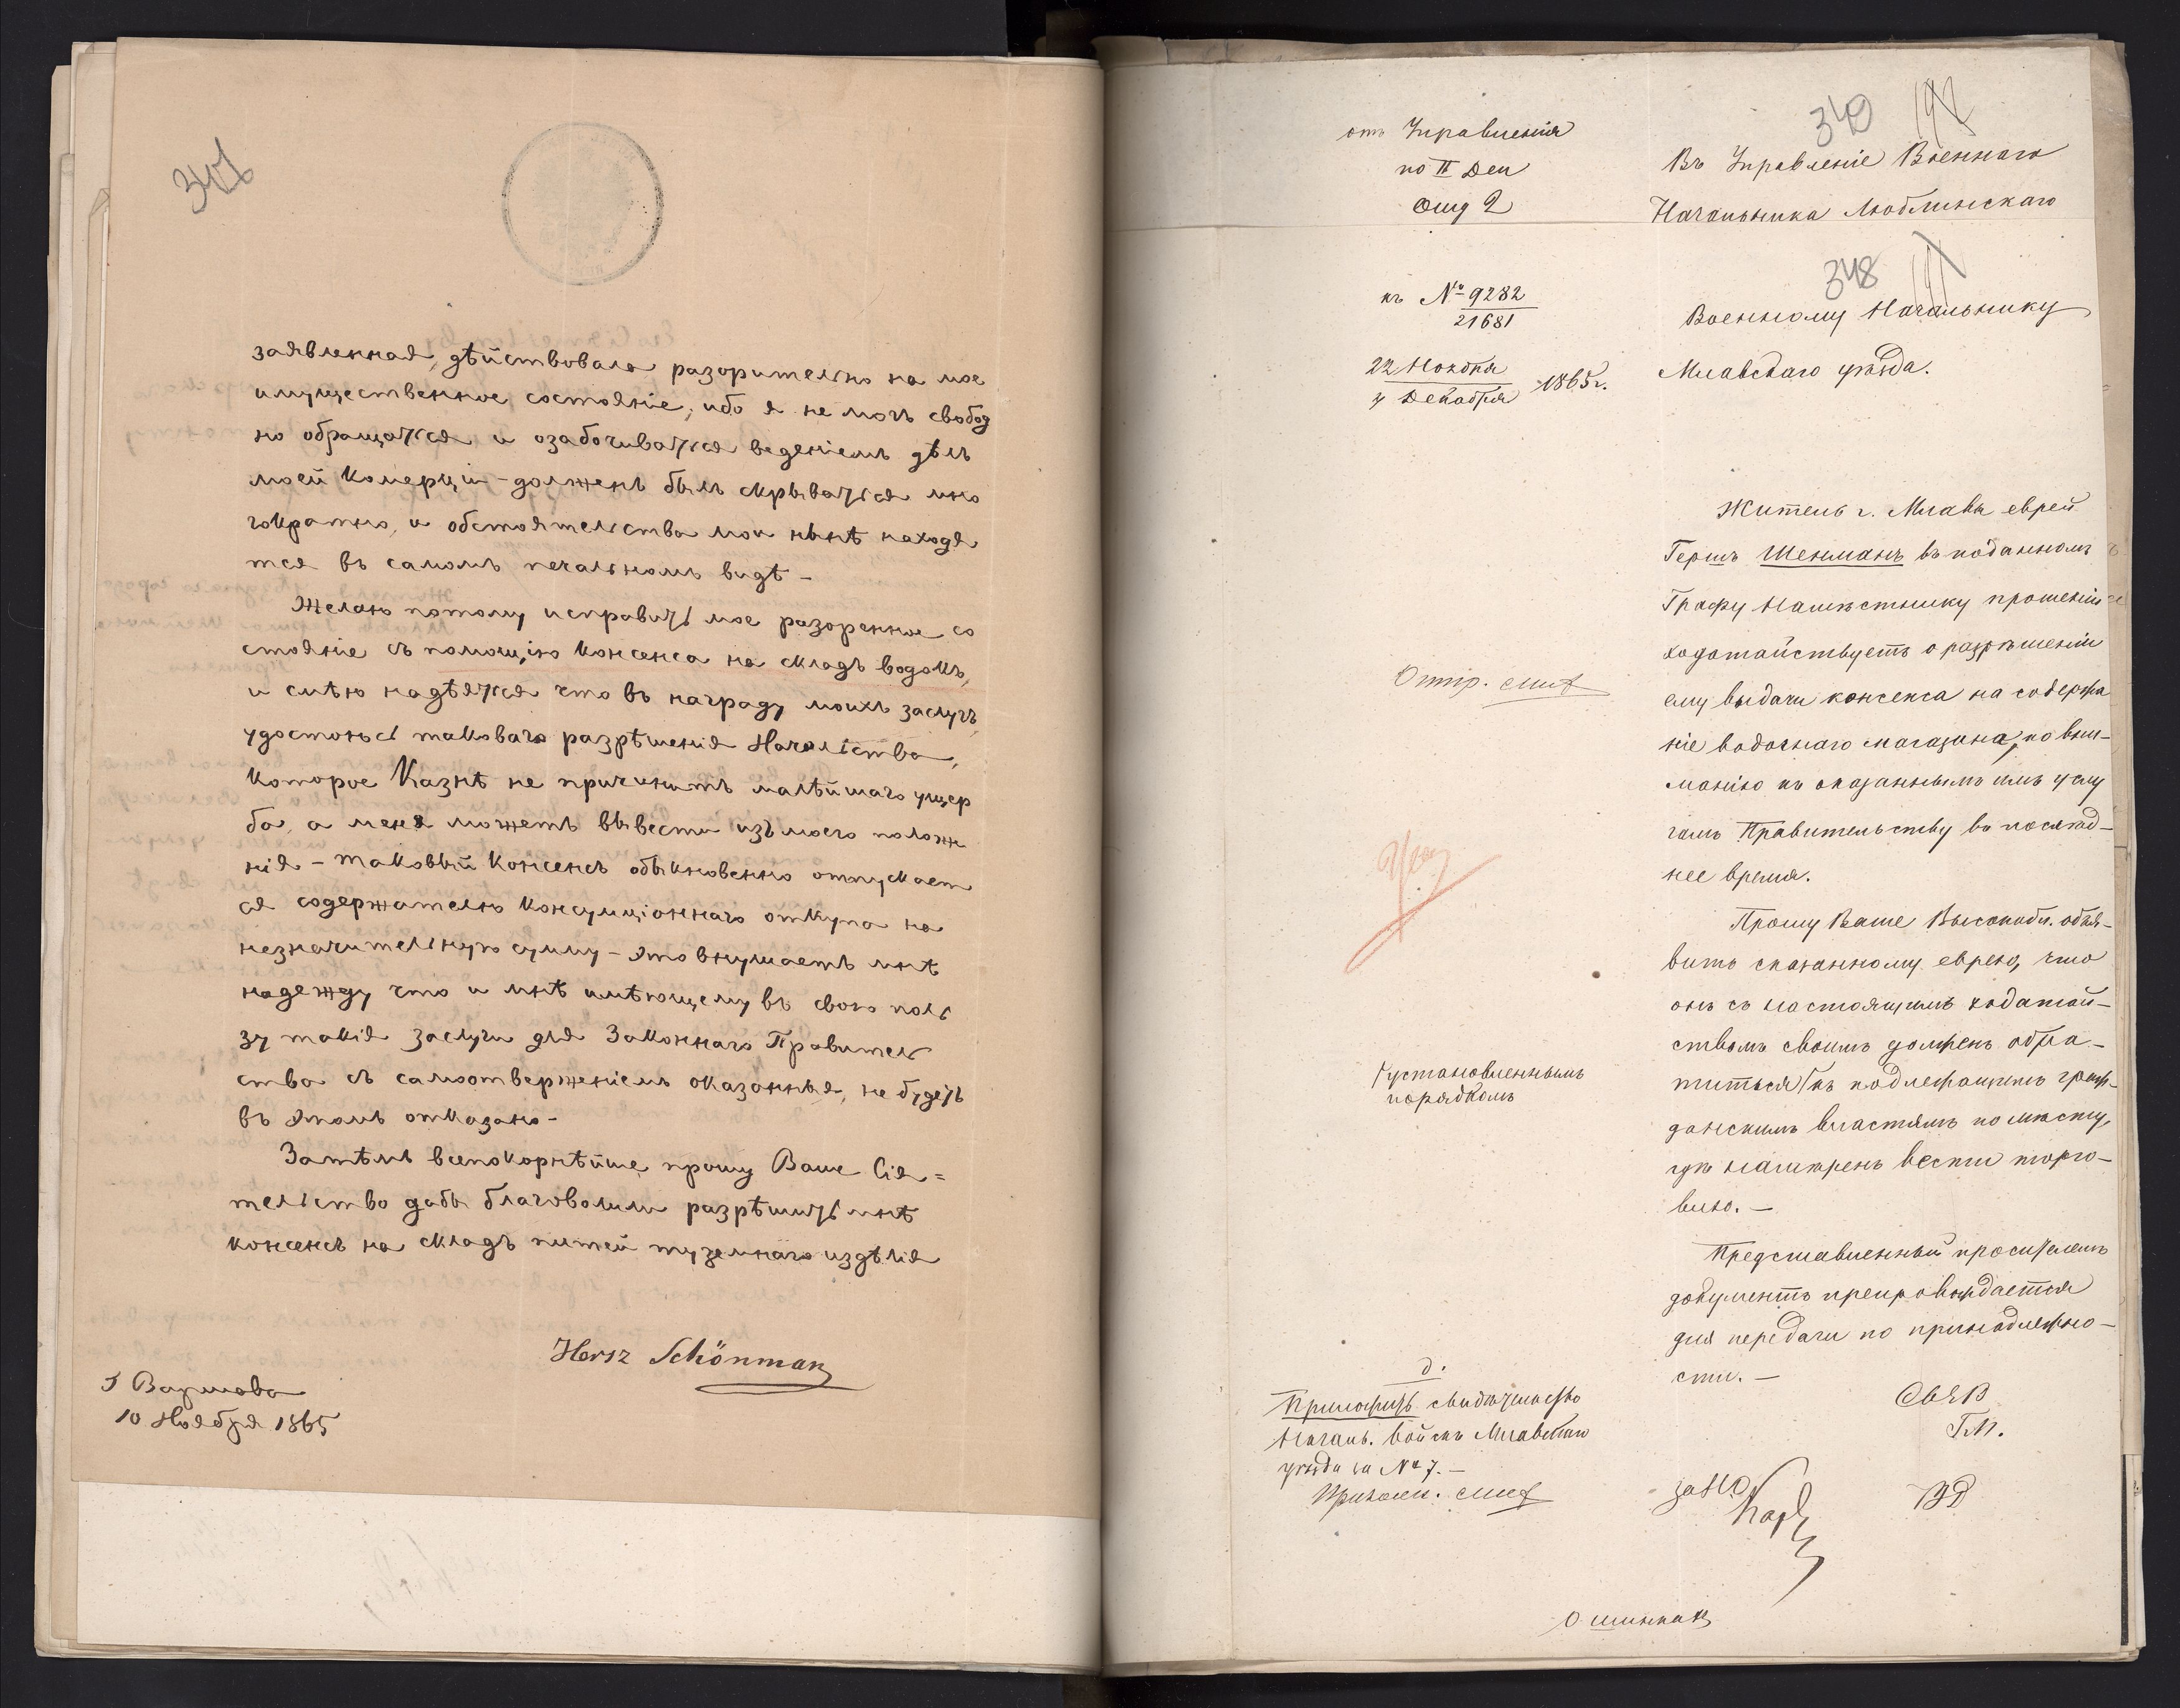 341
заявленная, дѣйствовала разорительно на мое
имущественное состояніе, ибо я не могъ свобод
но обращаться и озабочиваться веденіемъ дѣлъ
моей Комерціи – долженъ былъ скрываться мно
гократно, и обстоятельства мои нынѣ находя
тся въ самомъ печальномъ видѣ –
Желаю потому исправить мое разоренное со
стояніе съ помощію Консенса на складъ водокъ,
и смѣю надѣяться что въ награду моихъ заслугъ,
удостоюсь таковаго разрѣшенія Начальства,
которое Казнѣ не причинитъ малѣйшаго ущер
ба, а меня можетъ вывести изъ моего положе
нія – Таковый Консенсъ обыкновенно отпускает
ся содержателю Консумціоннаго откупа на
незначительную сумму – это внушаетъ мнѣ
надежду что и мнѣ имѣющему въ свою поль
зу такія заслуги для Законнаго Правитель
ства съ самоотверженіемъ оказанныя, не будетъ
въ этомъ отказано –
Затѣмъ всепокорнѣйше прошу Ваше Сія=
тельство дабы благоволили разрѣшить мнѣ
консенсъ на складъ питей туземнаго издѣлія
Hersz Schönman
Варшава
10 Ноября 1865
349
отъ Управленія
по II Ден
Отд 2
Въ Управленіе Военнаго
Начальника Люблинскаго
348
къ № 9282
21681
22 Ноября
4 Декабря 1865 г.
Военному Начальнику
Млавскаго уѣзда.
Житель г. Млавы еврей
Гершъ Шенманъ въ поданномъ
Графу Намѣстнику прошеніи
ходатайствуетъ о разрѣшеніи
ему выдачи консенса на содержа
ніе водочнаго магазина, по вни-
манію къ оказаннымъ имъ услу
гамъ Правительству въ послѣд-
нее время.
Прошу Ваше Высокобл. объя-
вить сказанному еврею, что
онъ съ настоящимъ ходатай-
ствомъ своимъ долженъ обра-
титься къ подлежащимъ граж-
данскимъ властямъ по мѣсту,
гдѣ намѣренъ вести торго-
влю. –
Представленный просителемъ
документъ препровождается
для передачи по принадлежно-
сти. –
установленнымъ
порядкомъ
Приложить свидѣтельство
Началь. войскъ Млавскаго
уѣзда за № 7. –
О шинкахъ